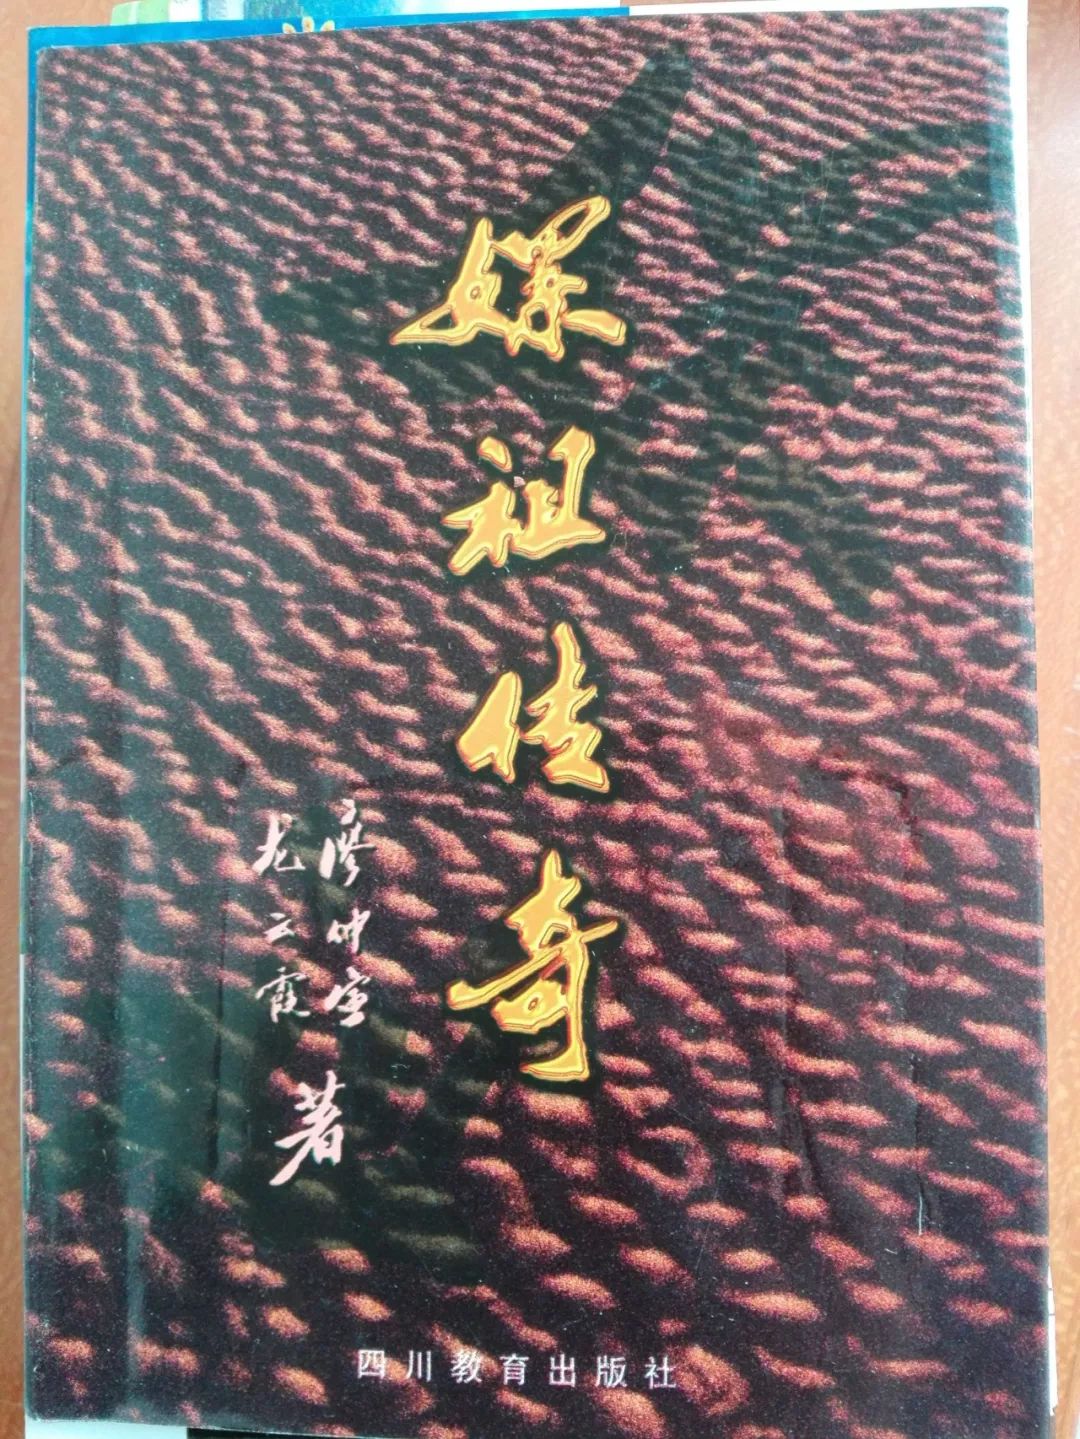 嫘祖传奇
廖仲宣
龙云霞
著
四川教育出版社